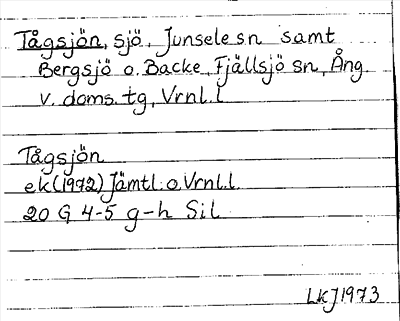 Tågsjön, sjö, Junsele sn samt
Bergsjö o. Backe, Fjällsjö sn, Ång.
v. doms. tg, Vrnl. l
Tågsjön
ek (1972) Jämtl. o. Vrnl. l.
20 G 4-5 g-h Sil
LKJ 1973